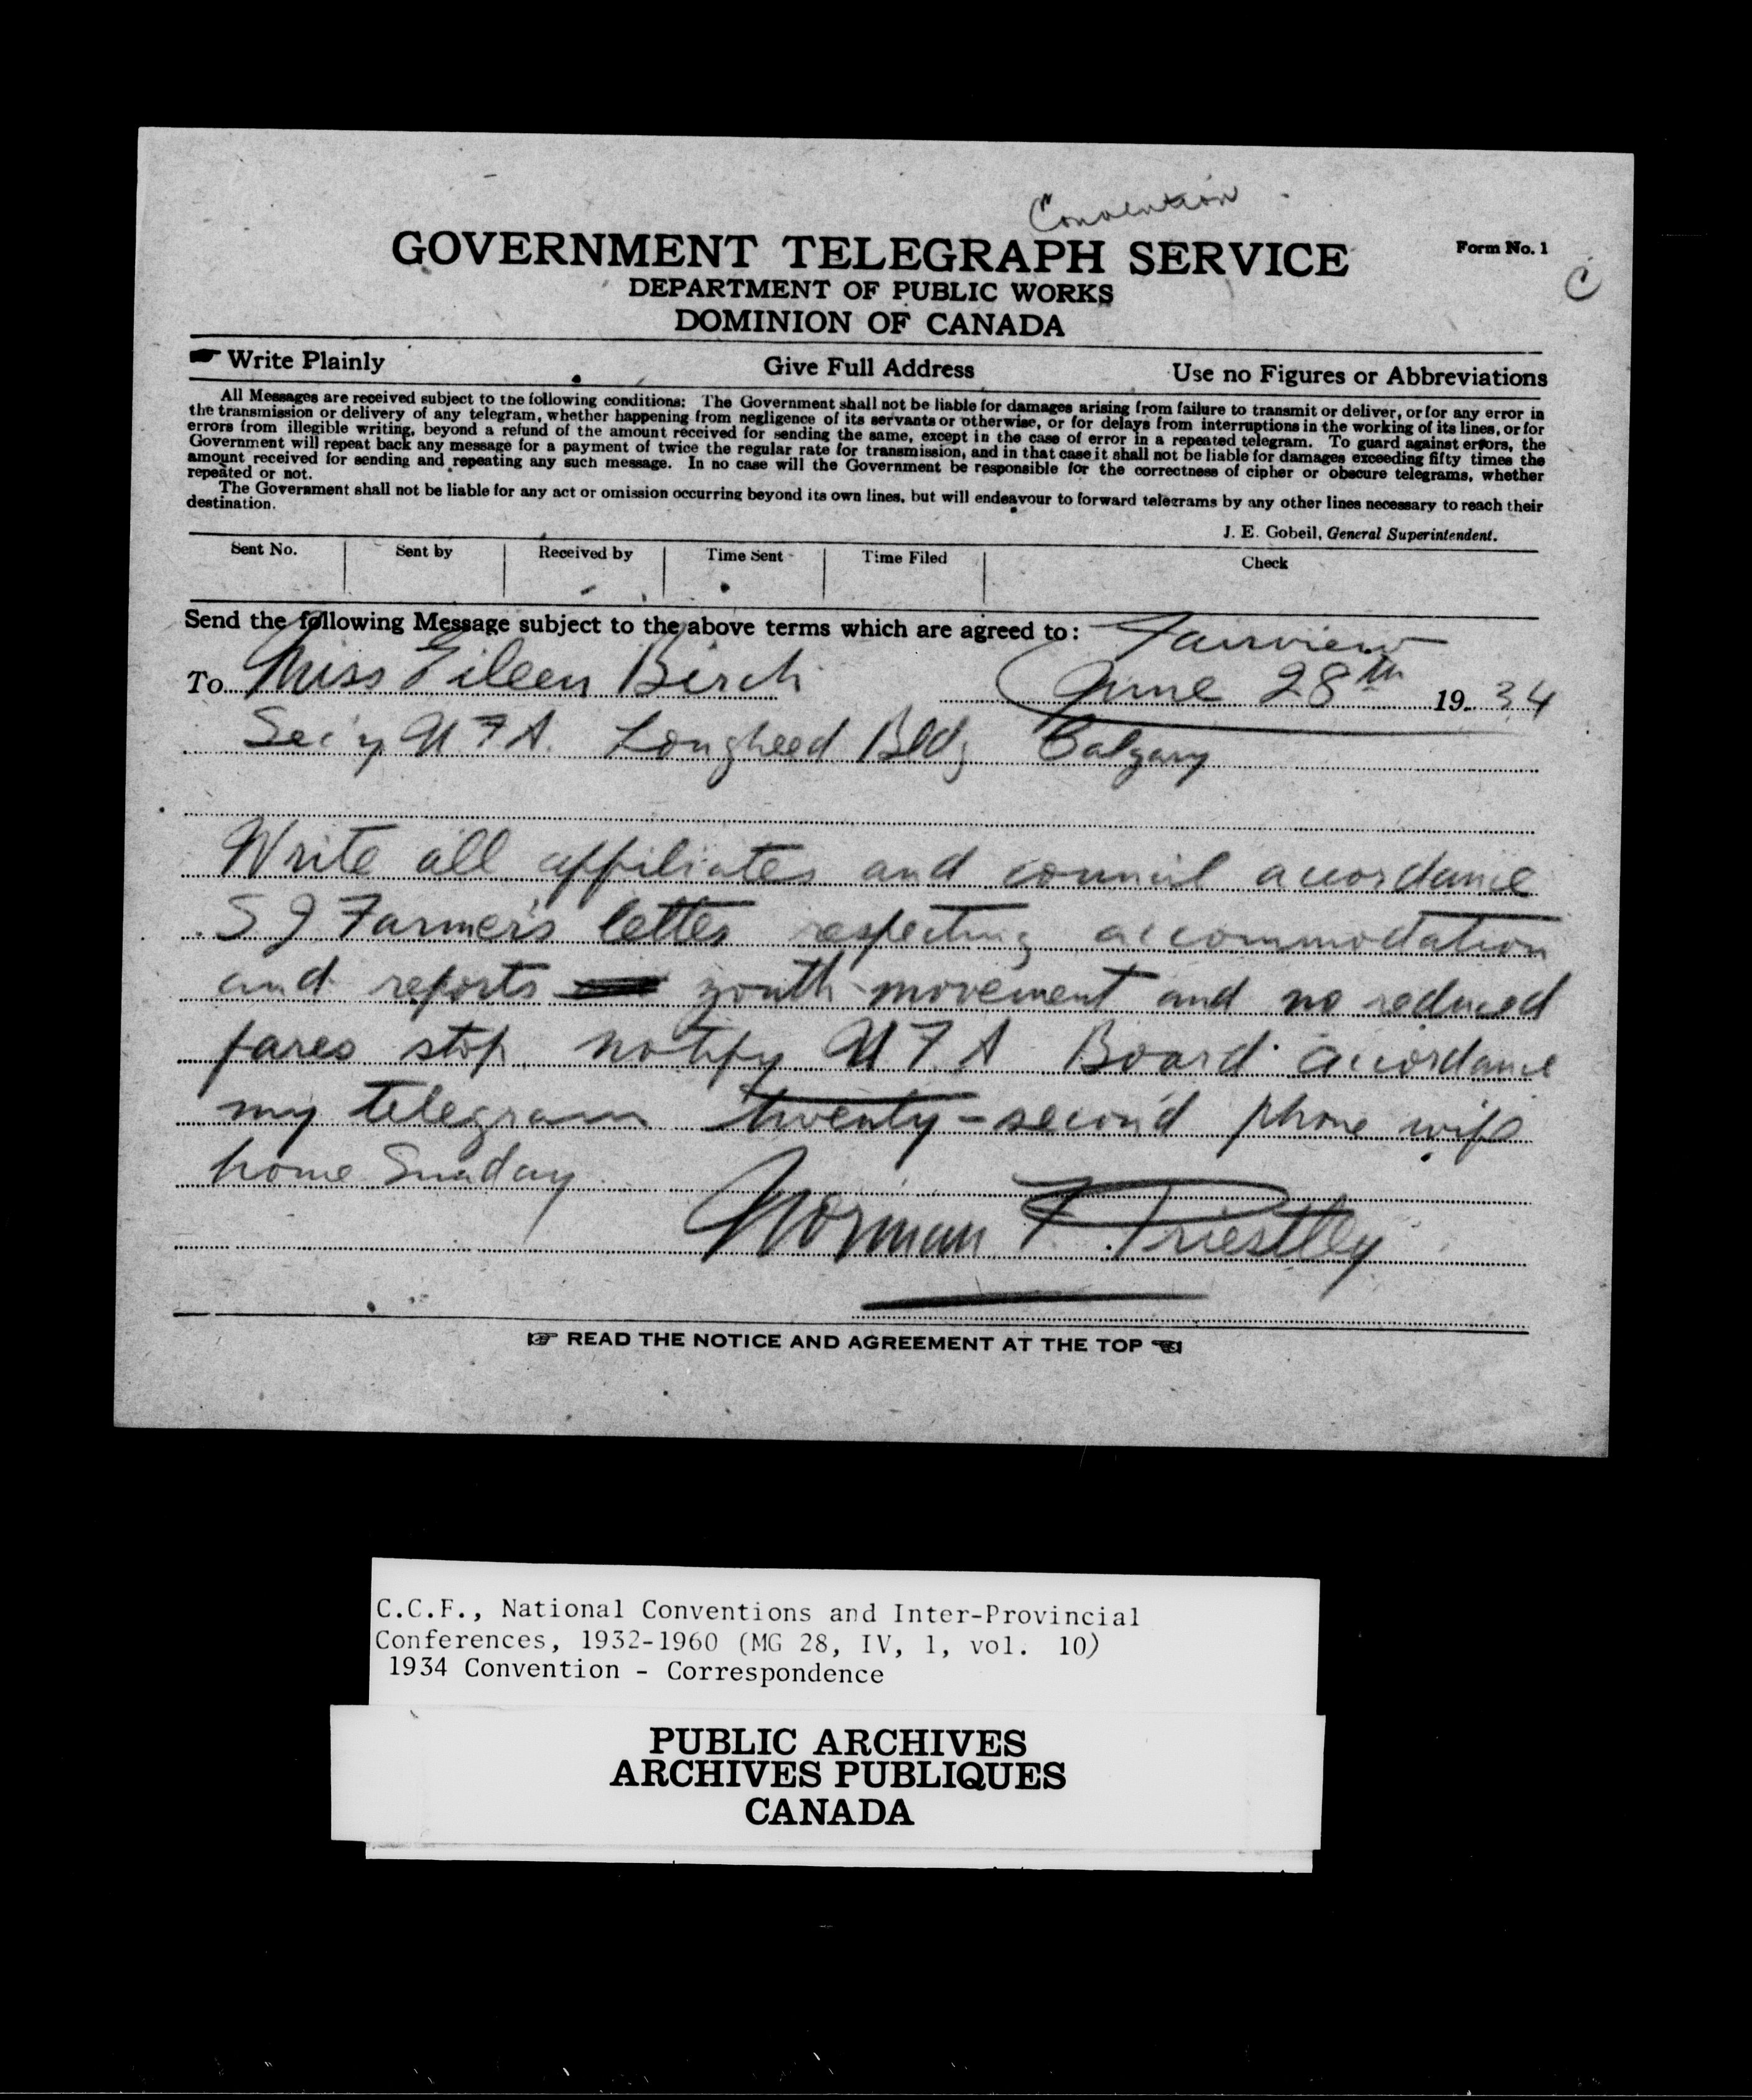 Convention
GOVERNMENT TELEGRAPH SERVICE
Form No. 1
C
DEPARTMENT OF PUBLIC WORKS
DOMINION OF CANADA
Write Plainly Give Full Address Use no Figures or Abbreviations
All Messages are received subject to the following conditions: The Government shall not be liable for damages arising from failure to transmit or deliver, or for any error in
the transmission or delivery of any telegram, whether happening from negligence of its servants or otherwise, or for delays from interruptions in the working of its lines, or for
errors from illegible writing, beyond a refund of the amount received for sending the same, except in the case of error in a repeated telegram. To guard against errors, the
Government will repeat back any message for a payment of twice the regular rate for transmission, and in that case it shall not be liable for damages exceeding fifty times the
amount received for sending and repeating any such message. In no case will the Government be responsible for the correctness of cipher or obscure telegrams, whether
repeated or not.
The Government shall not be liable for any act or omission occurring beyond its own lines, but will endeavour to forward telegrams by any other lines necessary to reach their
destination.
J. E. Gobeil, General Superintendent.
Sent No. Sent by Received by Time Sent Time Filed Check
Send the following Message subject to the above terms which are agreed to: Fairview
To Miss Eileen Birch June 28th 1934
Sec'y U F A. Lougheed Bldg Calgary
Write all affiliates and council accordance
S J Farmer's letter respecting accommodation
and reports youth movement and no reduced
fares stop notify U F A Board accordance
my telegram twenty-second phone wife
home Sunday
Norman F. Priestley
READ THE NOTICE AND AGREEMENT AT THE TOP
C.C.F., National Conventions and Inter-Provincial
Conferences, 1932-1960 (MG 28, IV, 1, vol. 10)
1934 Convention - Correspondence
PUBLIC ARCHIVES
ARCHIVES PUBLIQUES
CANADA